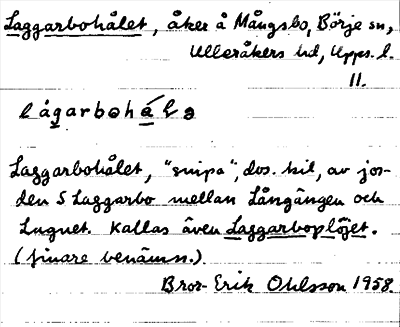 Laggarbohålet, åker å Mångsbo, Börje sn,
Ulleråkers hd, Upps. l.
11.
lågarbohálə
Laggarbohålet, "snipa", dvs. kil, av jor-
den S Laggarbo mellan Långängen och
Lugnet. Kallas även Laggarboplöjet.
(finare benämn.)
Bror-Erik Ohlsson 1958